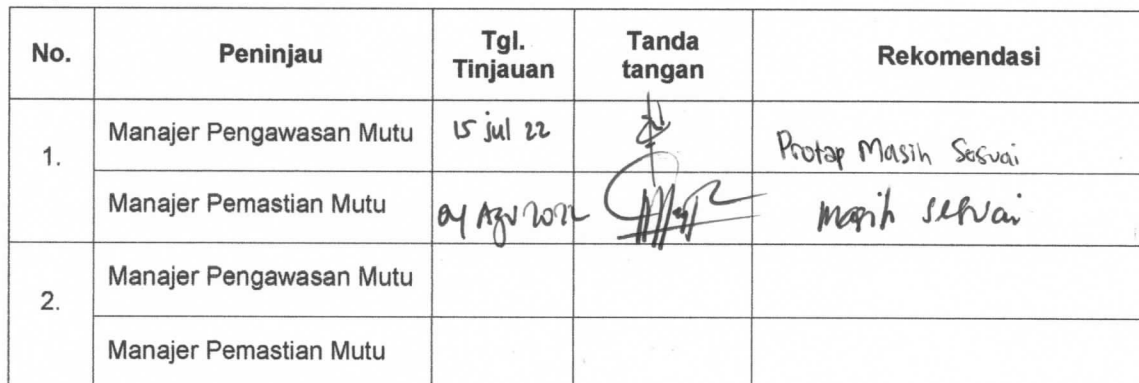 No. Peninjau Tgl. Tinjauan Tanda tangan Rekomendasi
1. Manajer Pengawasan Mutu 15 jul 22 Protap Masih Sesuai
Manajer Pemastian Mutu 04 Agu 2022 masih sesuai
2. Manajer Pengawasan Mutu
Manajer Pemastian Mutu